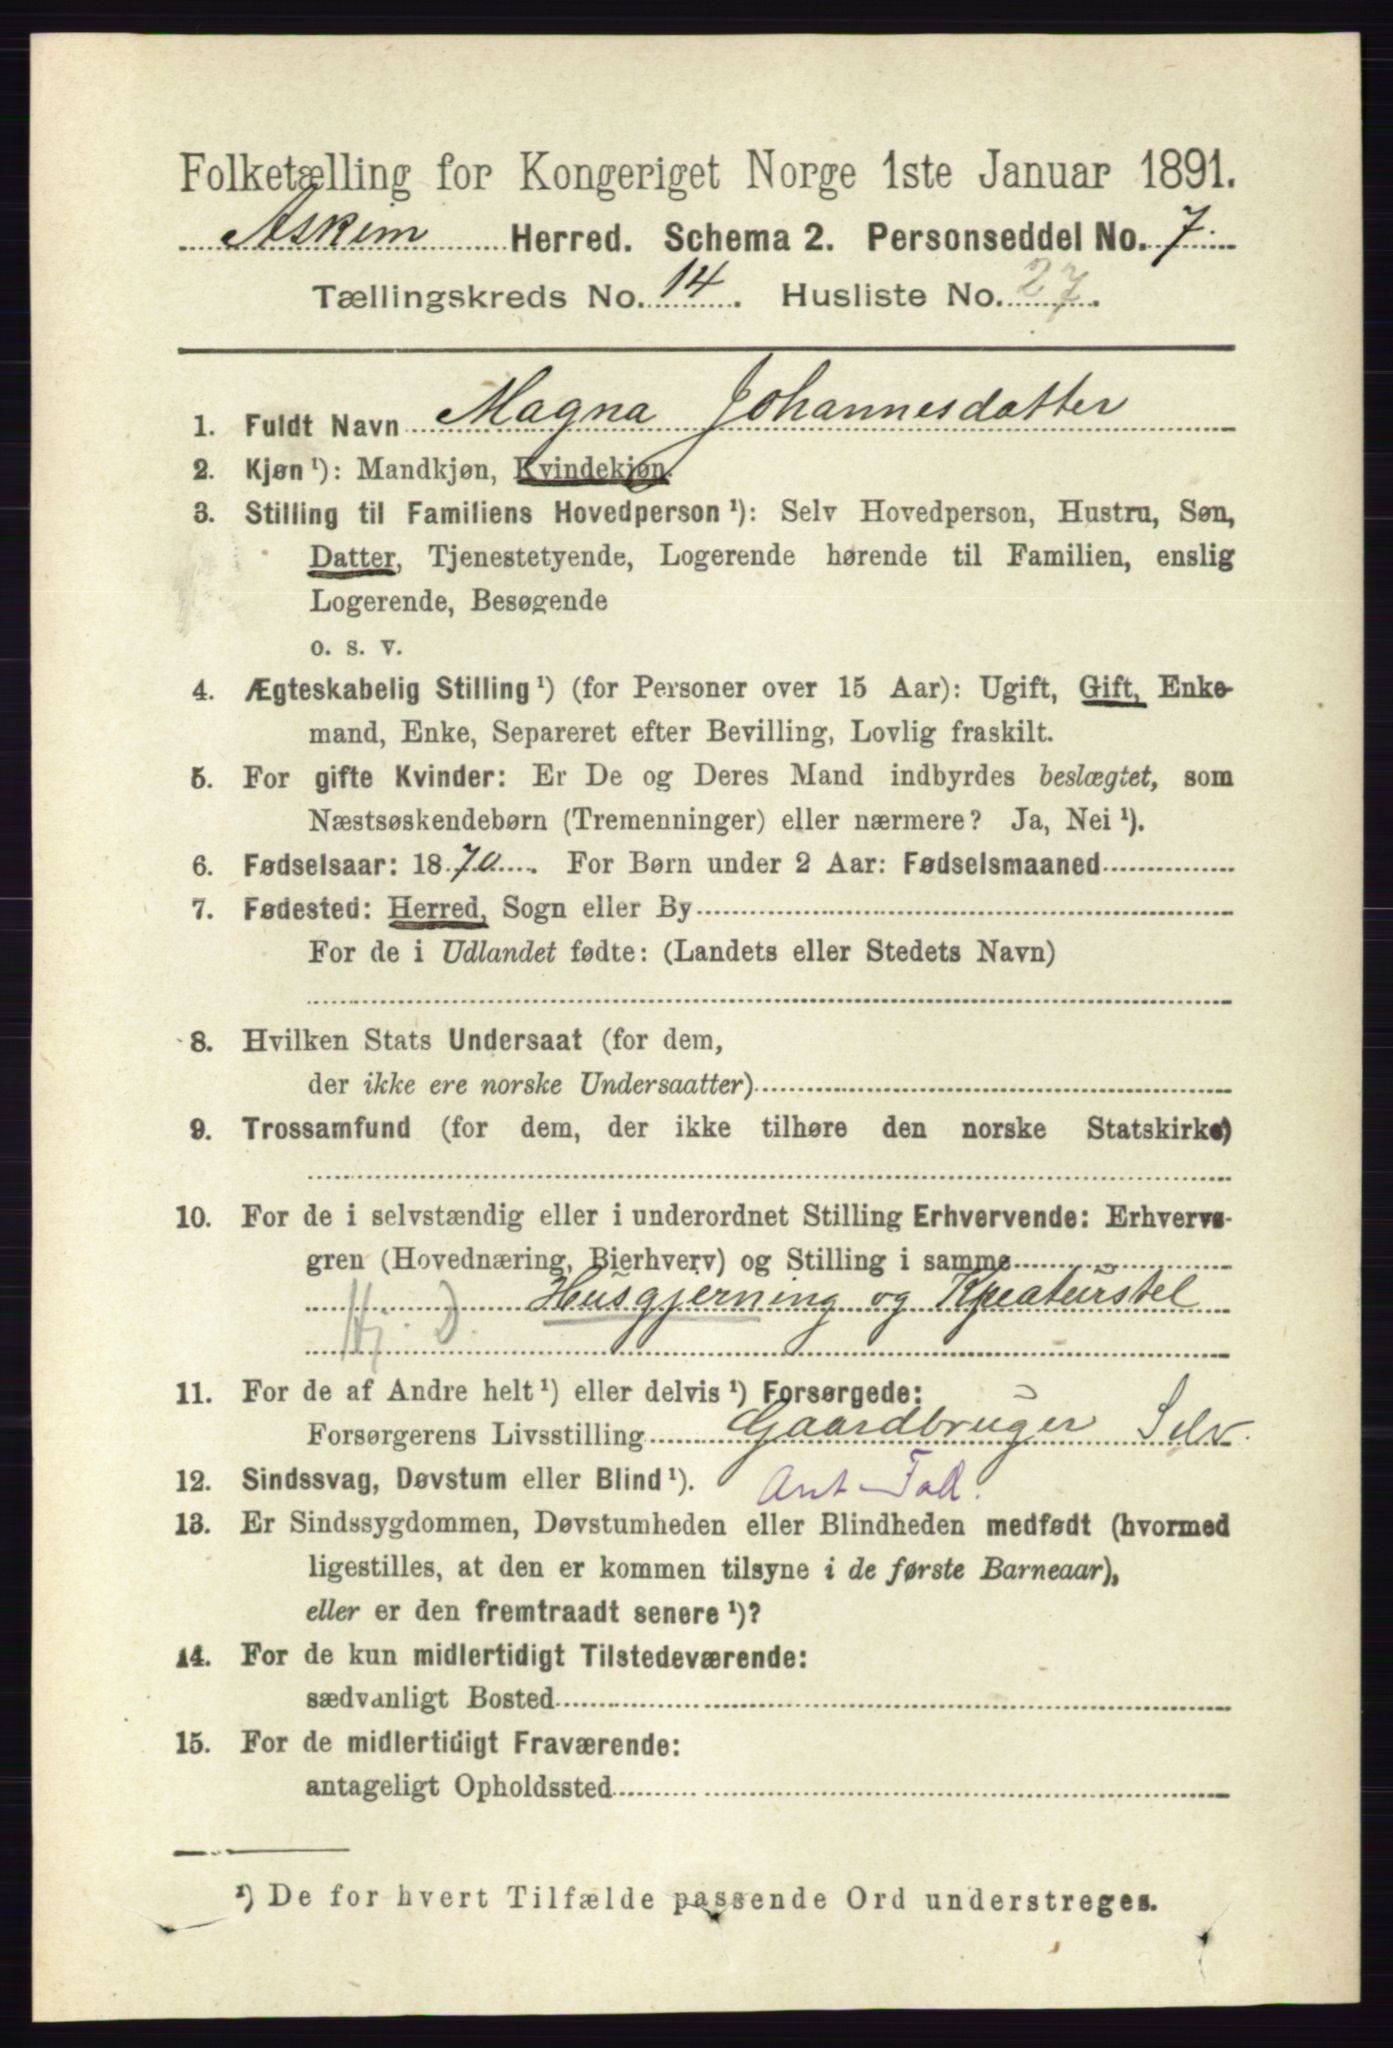 Folketælling for Kongeriget Norge 1ste Januar 1891.
Askim Herred. Schema 2. Personseddel No. 7.
Tællingskreds No. 14. Husliste No. 27.
1. Fuldt Navn Magna Johannesdatter
2. Kjøn ¹): Mandkjøn, Kvindekjøn.
3. Stilling til Familiens Hovedperson ¹): Selv Hovedperson, Hustru, Søn,
Datter, Tjenestetyende, Logerende hørende til Familien, enslig
Logerende, Besøgende
o. s. v.
4. Ægteskabelig Stilling ¹) (for Personer over 15 Aar): Ugift, Gift, Enke-
mand, Enke, Separeret efter Bevilling, Lovlig fraskilt.
5. For gifte Kvinder: Er De og Deres Mand indbyrdes beslægtet, som
Næstsøskendebørn (Tremenninger) eller nærmere? Ja, Nei ¹).
6. Fødselsaar: 1870. For Børn under 2 Aar: Fødselsmaaned
7. Fødested: Herred, Sogn eller By
For de i Udlandet fødte: (Landets eller Stedets Navn)
8. Hvilken Stats Undersaat (for dem,
der ikke ere norske Undersaatter)
9. Trossamfund (for dem, der ikke tilhøre den norske Statskirke)
10. For de i selvstændig eller i underordnet Stilling Erhvervende: Erhvervs-
gren (Hovednæring, Bierhverv) og Stilling i samme
Husgjerning og Kreaturstel
Hj. D.
11. For de af Andre helt ¹) eller delvis ¹) Forsørgede:
Forsørgerens Livsstilling Gaardbruger Selv.
12. Sindssvag, Døvstum eller Blind ¹). Ant-Fad.
13. Er Sindssygdommen, Døvstumheden eller Blindheden medfødt (hvormed
ligestilles, at den er kommen tilsyne i de første Barneaar),
eller er den fremtraadt senere ¹)?
14. For de kun midlertidigt Tilstedeværende:
sædvanligt Bosted
15. For de midlertidigt Fraværende:
antageligt Opholdssted
¹) De for hvert Tilfælde passende Ord understreges.